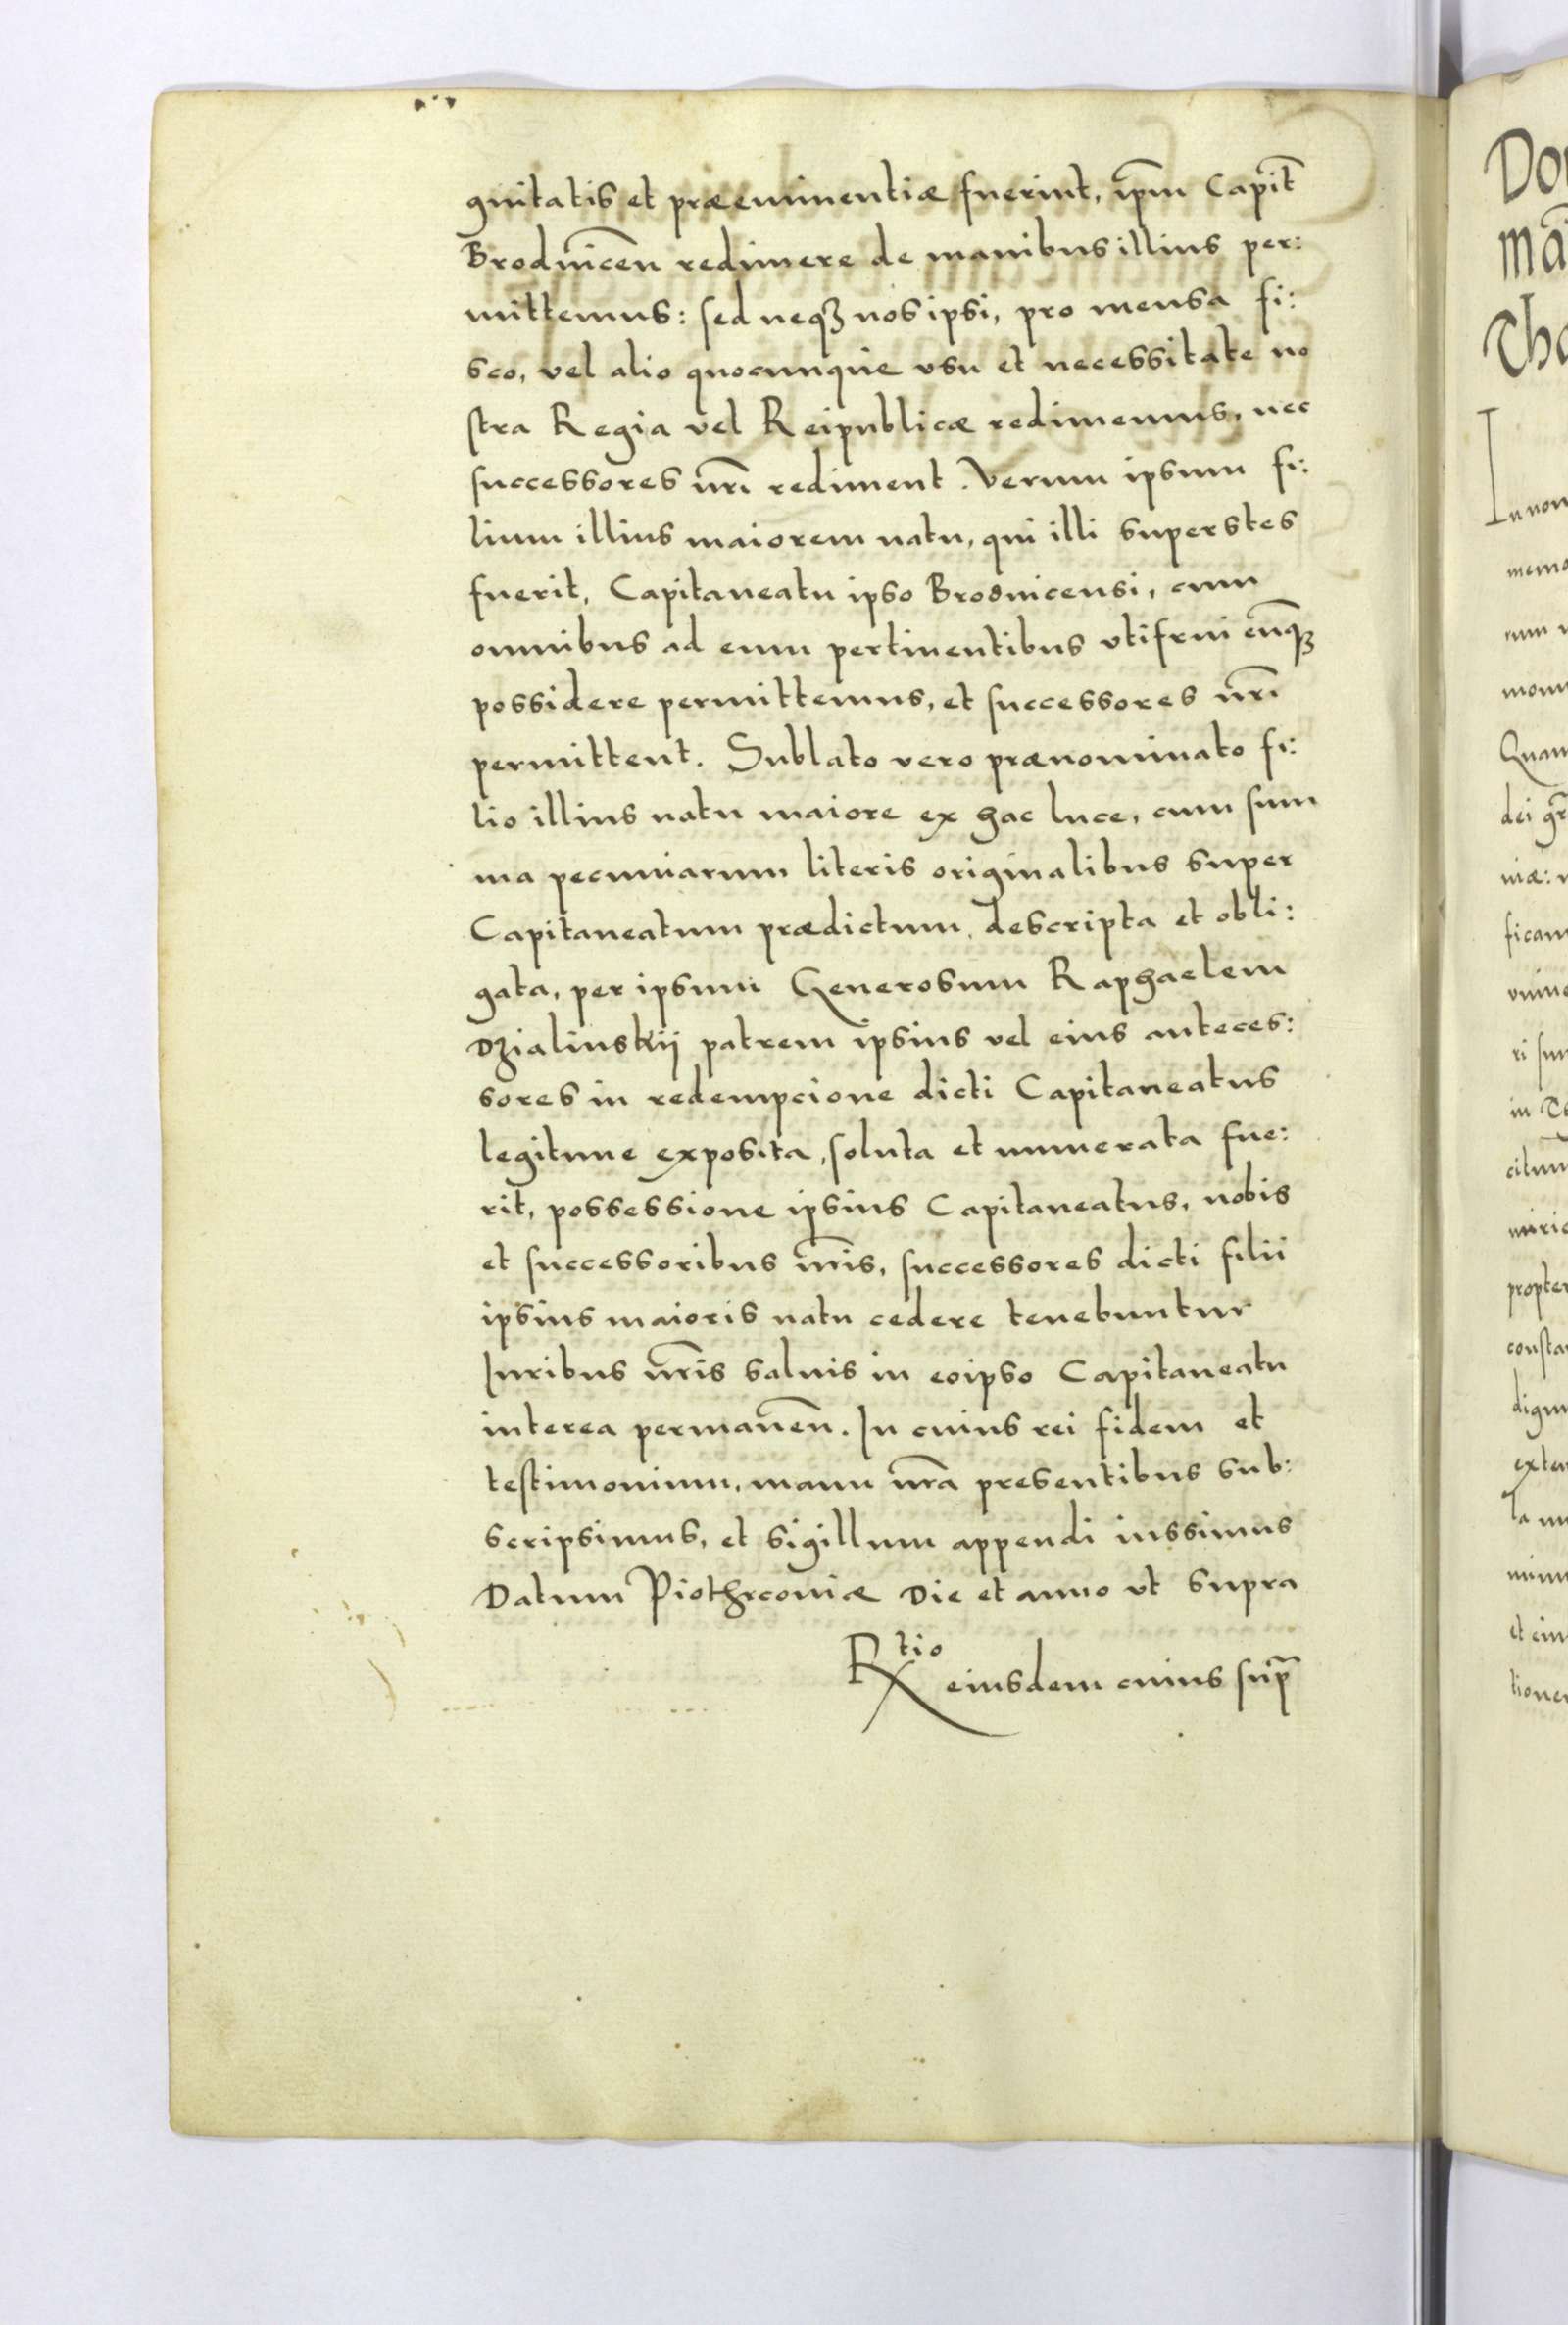 gnitatis et præeminentiæ fuerint, ip̃m Capit̃
Brodnicen̄ redimere de manibus illius per:
mittemus: sed neqꝫ nos ipsi, pro mensa fi:
sco, vel alio quocunque vsu et necessitate no
stra Regia vel Reipublicæ redimemus, nec
successores nr̃i rediment. Verum ipsum fi:
lium illius maiorem natu, qui illi superstes
fuerit, Capitaneatu ipso Brodnicensi, cum
omnibus ad eum pertinentibus vtifrui eūqꝫ
possidere permittemus, et successores nr̃i
permittent. Sublato vero prænominato fi:
lio illius natu maiore ex hac luce, cum sum
ma pecuniarum literis originalibus super
Capitaneatum prædictum, descripta et obli:
gata, per ipsum Generosum Raphaelem
Dzialinskij patrem ipsius vel eius anteces:
sores in redempcione dicti Capitaneatus
legitime exposita, soluta et numerata fue:
rit, possessione ipsius Capitaneatus, nobis
et successoribus nr̃is, successores dicti filii
ipsius maioris natu cedere tenebuntur
Iuribus nr̃is saluis in eoipso Capitaneatu
interea permaneñ. In cuius rei fidem et
testimonium, manu nr̃a presentibus sub:
scripsimus, et sigillum appendi iussimus
Datum Piothrconiæ Die et anno vt supra
Rtio eiusdem cuius supͣ
Do
mā
Tho
In nom
memo
mom
Quam
dei gr̃
niæ:
ficam
ri sun
citum
propter
consta
dign
exten
la
et
tionem